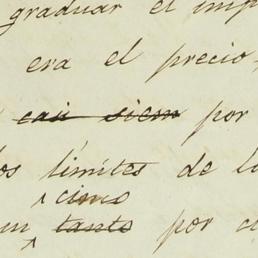 graduar el imp
era el precio
casi siem por
os límites de la
cinco
un tanto por c